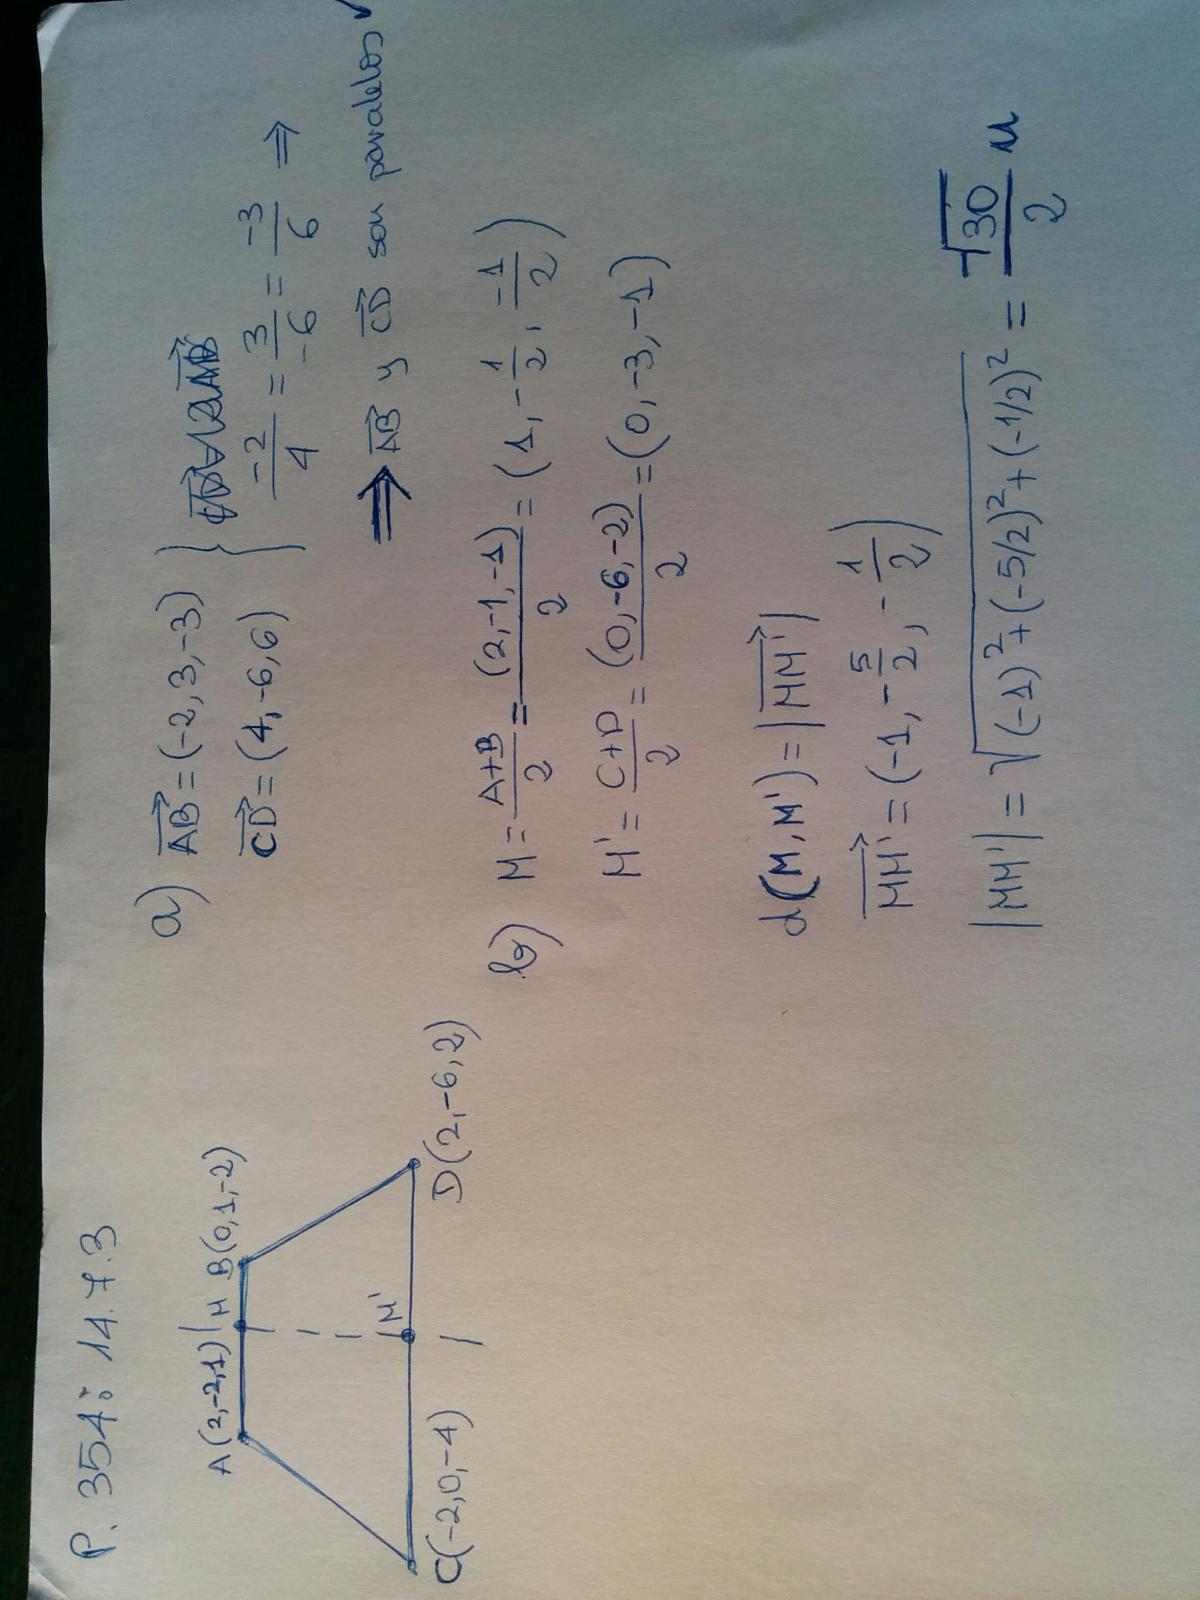 P. 354: 14.7.3
A(2,-2,1) M B(0,1,-2)
M'
C(-2,0,-4) D(2,-6,2)
a) AB⃗ = (-2,3,-3)
CD⃗ = (4,-6,6)
-2/4 = 3/-6 = -3/6 ⇒
⇒ AB⃗ y CD⃗ son paralelos ✓
b) M = A+B/2 = (2,-1,-1)/2 = (1, -1/2, -1/2)
M' = C+D/2 = (0,-6,-2)/2 = (0,-3,-1)
d(M,M') = |MM'⃗|
MM'⃗ = (-1, -5/2, -1/2)
|MM'| = √((-1)² + (-5/2)² + (-1/2)²) = √30/2 u